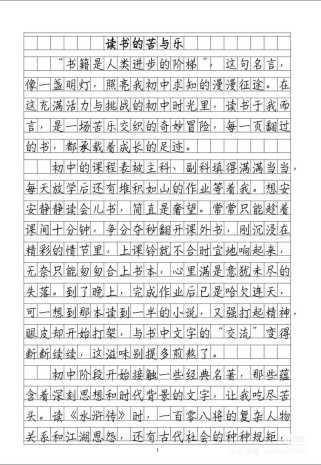 读书的苦与乐
“书籍是人类进步的阶梯”,这句名言,
像一盏明灯,照亮我初中求知的漫漫征途。在
这充满活力与挑战的初中时光里,读书于我而
言,是一场苦乐交织的奇妙冒险,每一页翻过
的书,都承载着成长的足迹。
初中的课程表被主科、副科填得满满当当,
每天放学后还有堆积如山的作业等着我。想安
安静静读会儿书,简直是奢望。常常只能趁着
课间十分钟,争分夺秒翻开课外书,刚沉浸在
精彩的情节里,上课铃就不合时宜地响起来,
无奈只能匆匆合上书本,心里满是意犹未尽的
失落。到了晚上,完成作业后已是哈欠连天,
可一想到那本读到一半的小说,又强打起精神,
眼皮却开始打架,与书中文字的“交流”变得
断断续续,这滋味别提多煎熬了。
初中阶段开始接触一些经典名著,那些蕴
含着深刻思想和时代背景的文字,让我吃尽苦
头。读《水浒传》时,一百零八将的复杂人物
关系和江湖恩怨,还有古代社会的种种规矩,
1